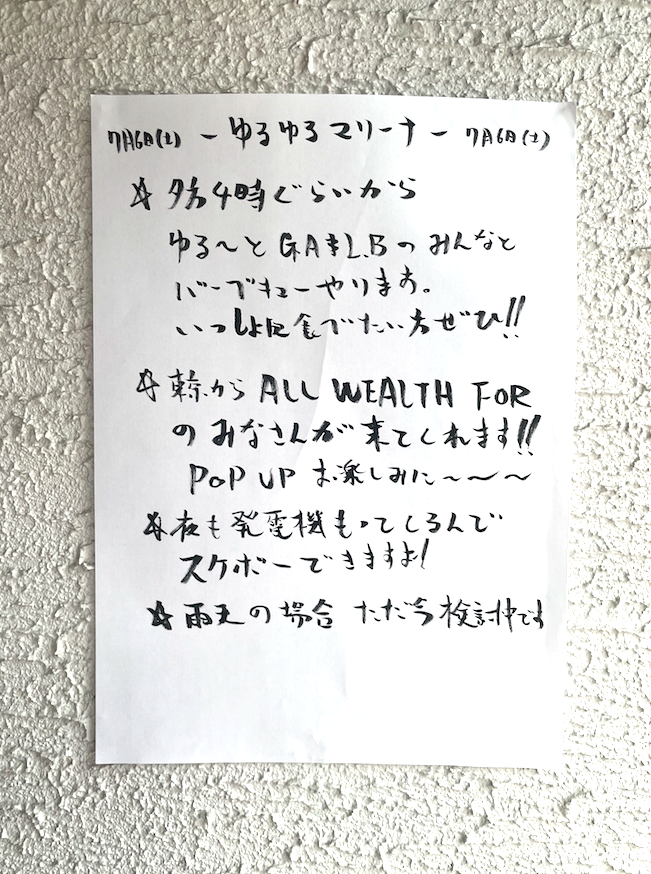 7月6日(土) ー ゆるゆるマリーナ ー 7月6日(土)
☆ 夕方4時ぐらいから
ゆる〜と GA L.Bのみんなと
バーベキューやります。
いっしょに食べたい方ぜひ!!
☆ 東京から ALL WEALTH FOR
のみなさんが来てくれます!!
POP UP お楽しみに〜〜〜
☆ 夜も発電機もってくるんで
スケボーできますよ!
☆ 雨天の場合 ただ今検討中です